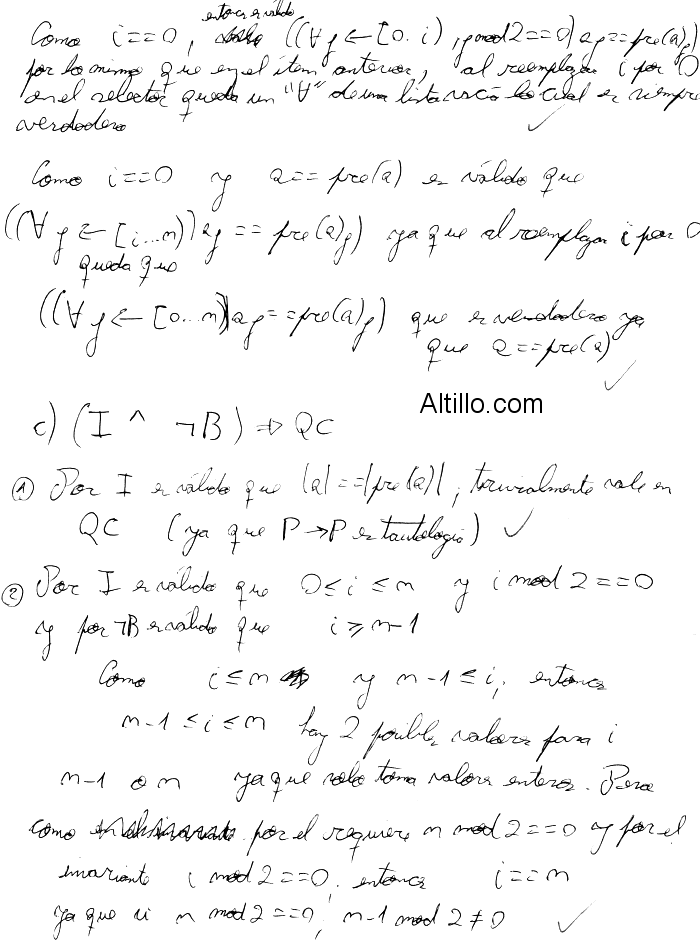 entonces es válido
Como i==0, ((∀ j ← [0..i), j mod 2==0) a_j==pre(a)_j)
por lo mismo que en el ítem anterior, al reemplazar i por 0
en el selector queda un "∀" de una lista vacía lo cual es siempre
verdadero
Como i==0 y a==pre(a) es válido que
((∀ j ← [i...n)) a_j == pre(a)_j) ya que al reemplazar i por 0
queda que
((∀ j ← [0...n)) a_j==pre(a)_j) que es verdadero ya
que a==pre(a)
Altillo.com
c) (I ^ ¬B) ⇒ QC
① Por I es válido que |a|==|pre(a)|, trivialmente vale en
QC (ya que P→P es tautología)
② Por I es válido que 0≤i≤n y i mod 2==0
y por ¬B es válido que i≥n-1
Como i≤n y n-1≤i, entonces
n-1≤i≤n hay 2 posibles valores para i
n-1 o n ya que solo toma valores enteros. Pero
como por el requiere n mod 2==0 y por el
invariante i mod 2==0, entonces i==n
ya que si n mod 2==0, n-1 mod 2≠0